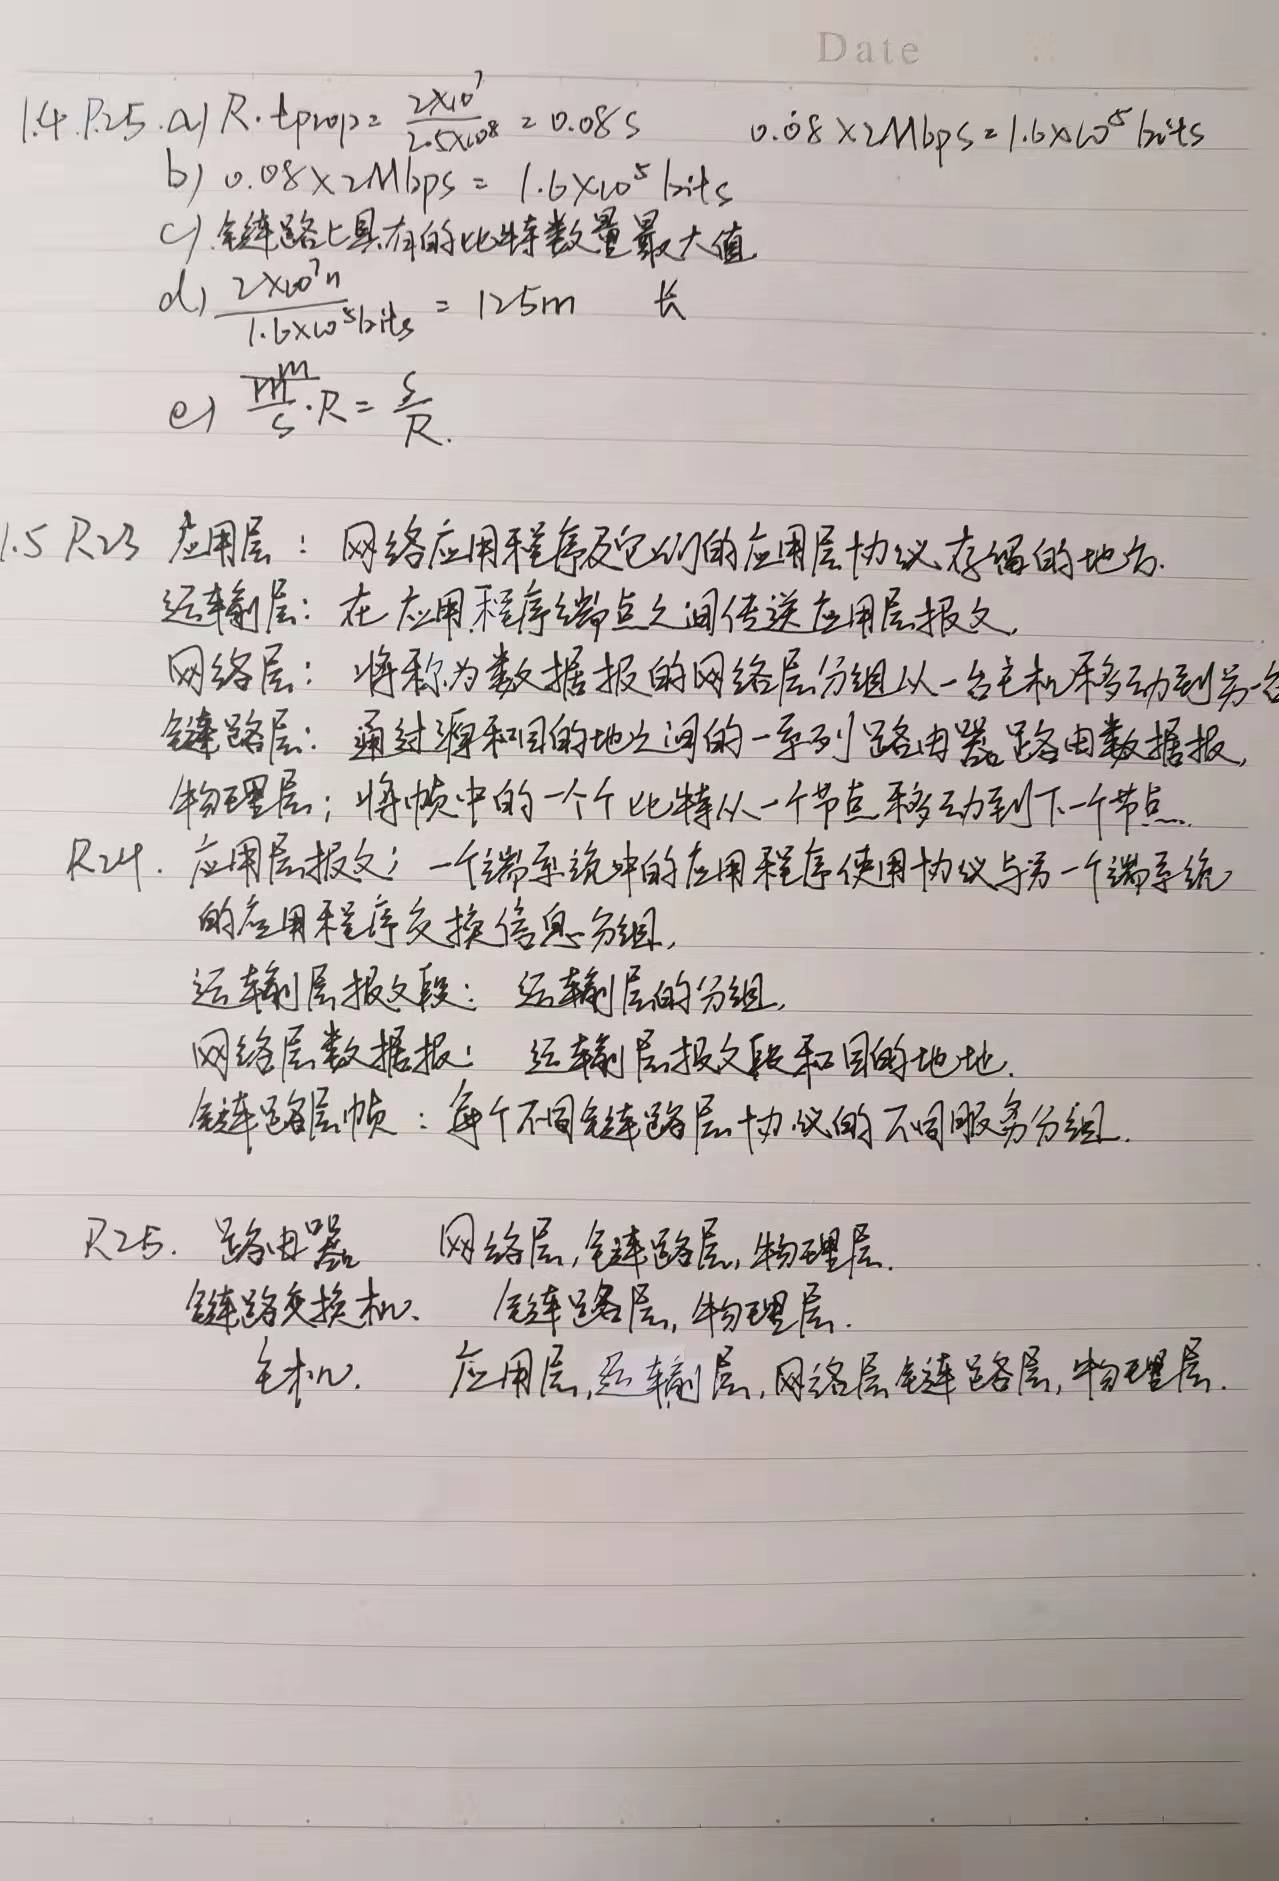 Date
1.4. P25. a) R·tprop= 2×10^7 / 2.5×10^8 = 0.08s 0.08×2Mbps=1.6×10^5 bits
b) 0.08×2Mbps= 1.6×10^5 bits
c) 链路上具有的比特数量最大值.
d) 2×10^7m / 1.6×10^5bits = 125m 长
e) m/s·R= s/R.
1.5 R23 应用层: 网络应用程序及它们的应用层协议存留的地方.
运输层: 在应用程序端点之间传送应用层报文.
网络层: 将称为数据报的网络层分组从一台主机移动到另一台
链路层: 通过源和目的地之间的一系列路由器路由数据报,
物理层; 将帧中的一个个比特从一个节点移动到下一个节点.
R24. 应用层报文: 一个端系统中的应用程序使用协议与另一个端系统
的应用程序交换信息分组,
运输层报文段: 运输层的分组,
网络层数据报: 运输层报文段和目的地地.
链路层帧: 每个不同链路层协议的不同服务分组.
R25. 路由器 网络层,链路层,物理层.
链路交换机. 链路层,物理层.
主机. 应用层,运输层,网络层链路层,物理层.